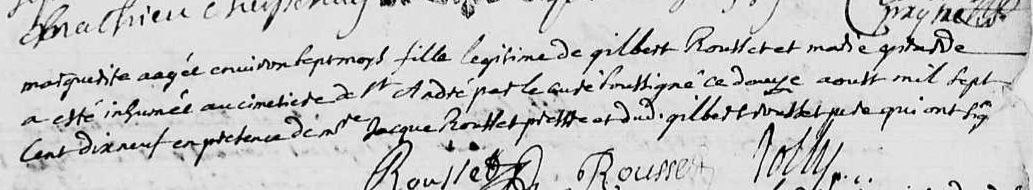 mathieu
marguerite aagée environ sept moys fille legitime de gilbert Rousset et marie girarde
a esté inhumée au cimetiere de St André par le curé soussigné ce douze aoust mil sept
Cent dix neuf en presence de mre Jacque Rousset prestre et dud. gilbert rousset pere qui ont sig
Rousset Rousset